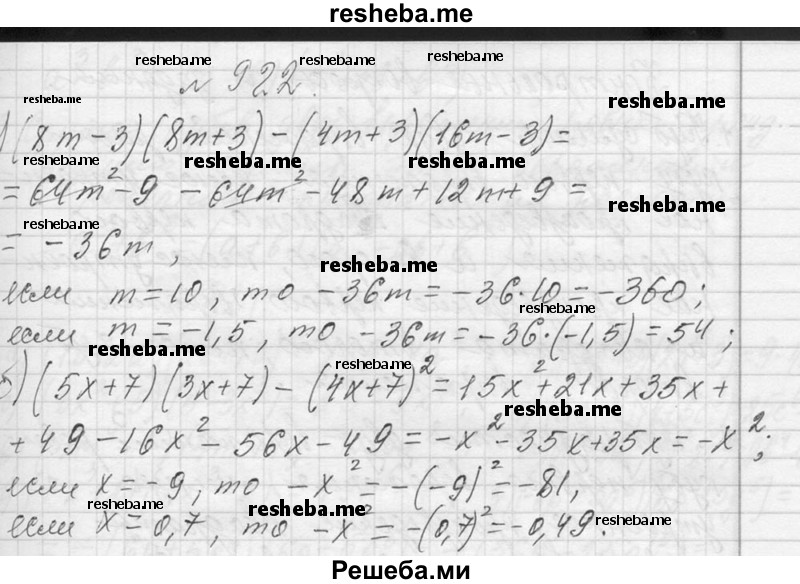 resheba.me
resheba.me resheba.me resheba.me
№ 922.
resheba.me resheba.me
) (8m-3)(8m+3)-(4m+3)(16m-3)=
resheba.me resheba.me resheba.me
= 64m²-9 - 64m² - 48m + 12m + 9 =
resheba.me resheba.me
= - 36m,
resheba.me
если m = 10, то - 36m = - 36·10 = - 360;
resheba.me
если m = -1,5, то - 36m = - 36·(-1,5) = 54;
resheba.me resheba.me
б) (5x+7)(3x+7)-(4x+7)² = 15x² + 21x + 35x +
resheba.me
+ 49 - 16x² - 56x - 49 = - x² - 35x + 35x = - x²;
если x = - 9, то - x² = - (-9)² = - 81,
resheba.me resheba.me
если x = 0,7, то - x² = - (0,7)² = - 0,49.
resheba.me
Решеба.ми